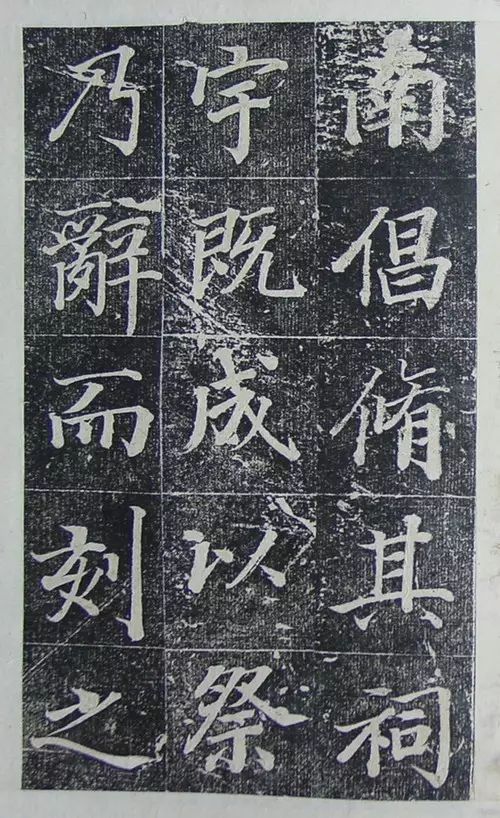 南倡脩其祠
宇既成以祭
乃辭而刻之